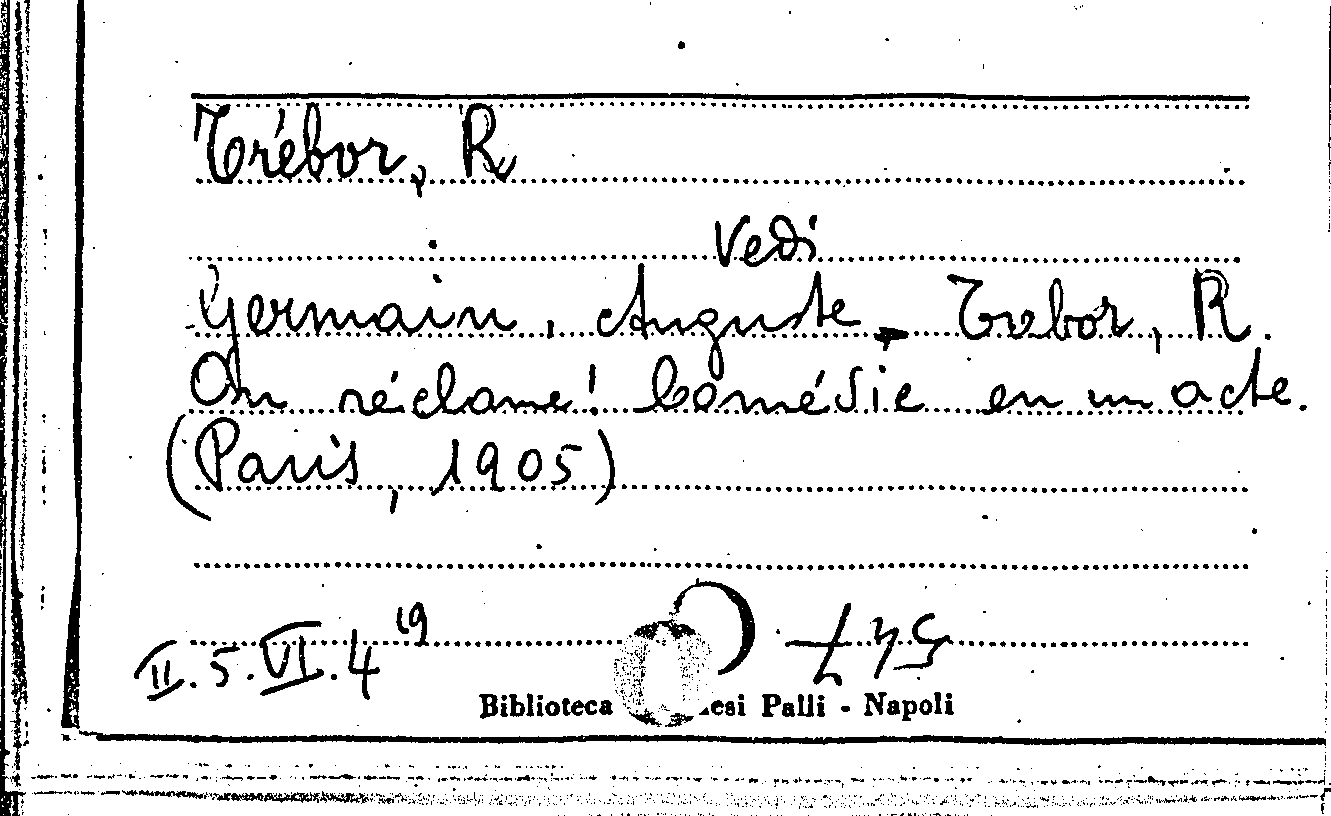 Trébor, R
Vedi
Germain, Auguste - Trebor, R.
On réclame! Comédie en un acte.
(Paris, 1905)
II.5.VI.4 19
Biblioteca esi Palli - Napoli